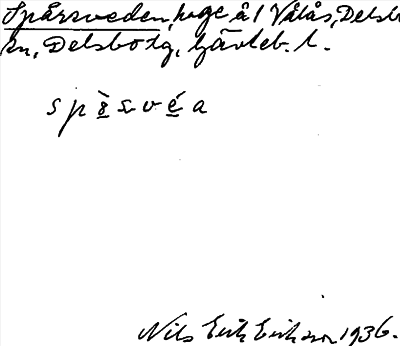 Spårsveden, hage å 1 Vålås, Delsb
sn, Delsbo tg, Gävleb. l.
spɛ̀svéa
Nils Erik Erikson 1936.